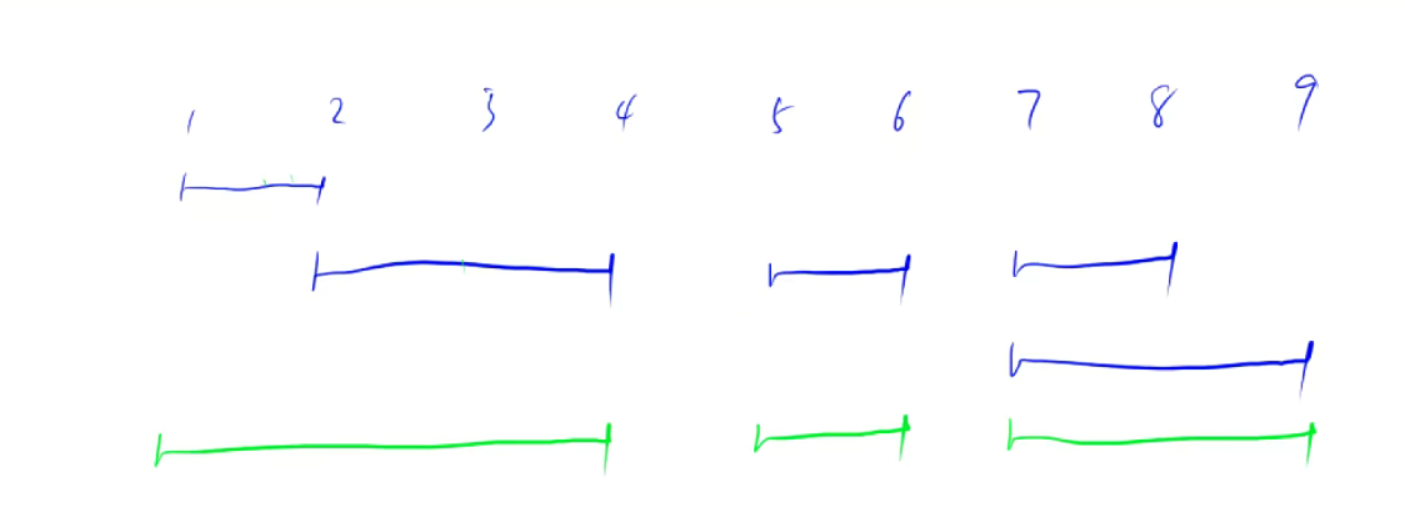 1 2 3 4 5 6 7 8 9